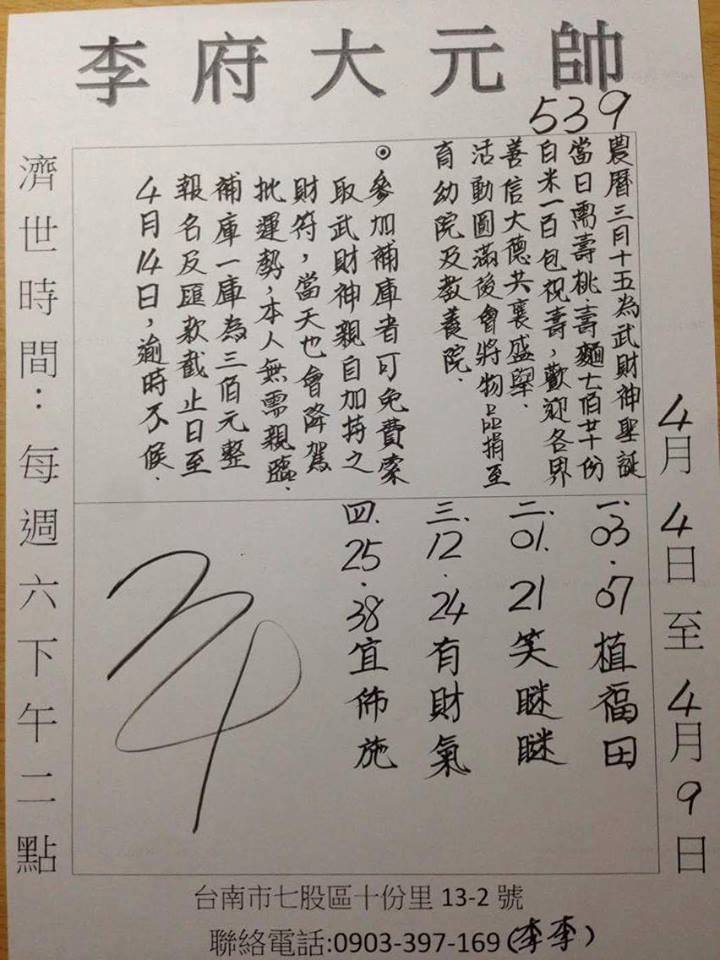 李府大元帥
539
農曆三月十五為武財神聖誕
當日需壽桃.壽麵七佰廿份
白米一百包祝壽,歡迎各界
善信大德共襄盛舉.
活動圓滿後會將物品捐至
育幼院及教養院.
⊙參加補庫者可免費索
取武財神親自加持之
財符,當天也會降駕
批運勢,本人無需親臨.
補庫一庫為三佰元整
報名及匯款截止日至
4月14日,逾時不候.
4月4日至4月9日
一.03.07植福田
二.01.21笑瞇瞇
三.12.24有財氣
四.25.38宜佈施
濟世時間:每週六下午二點
台南市七股區十份里 13-2 號
聯絡電話:0903-397-169(李李)